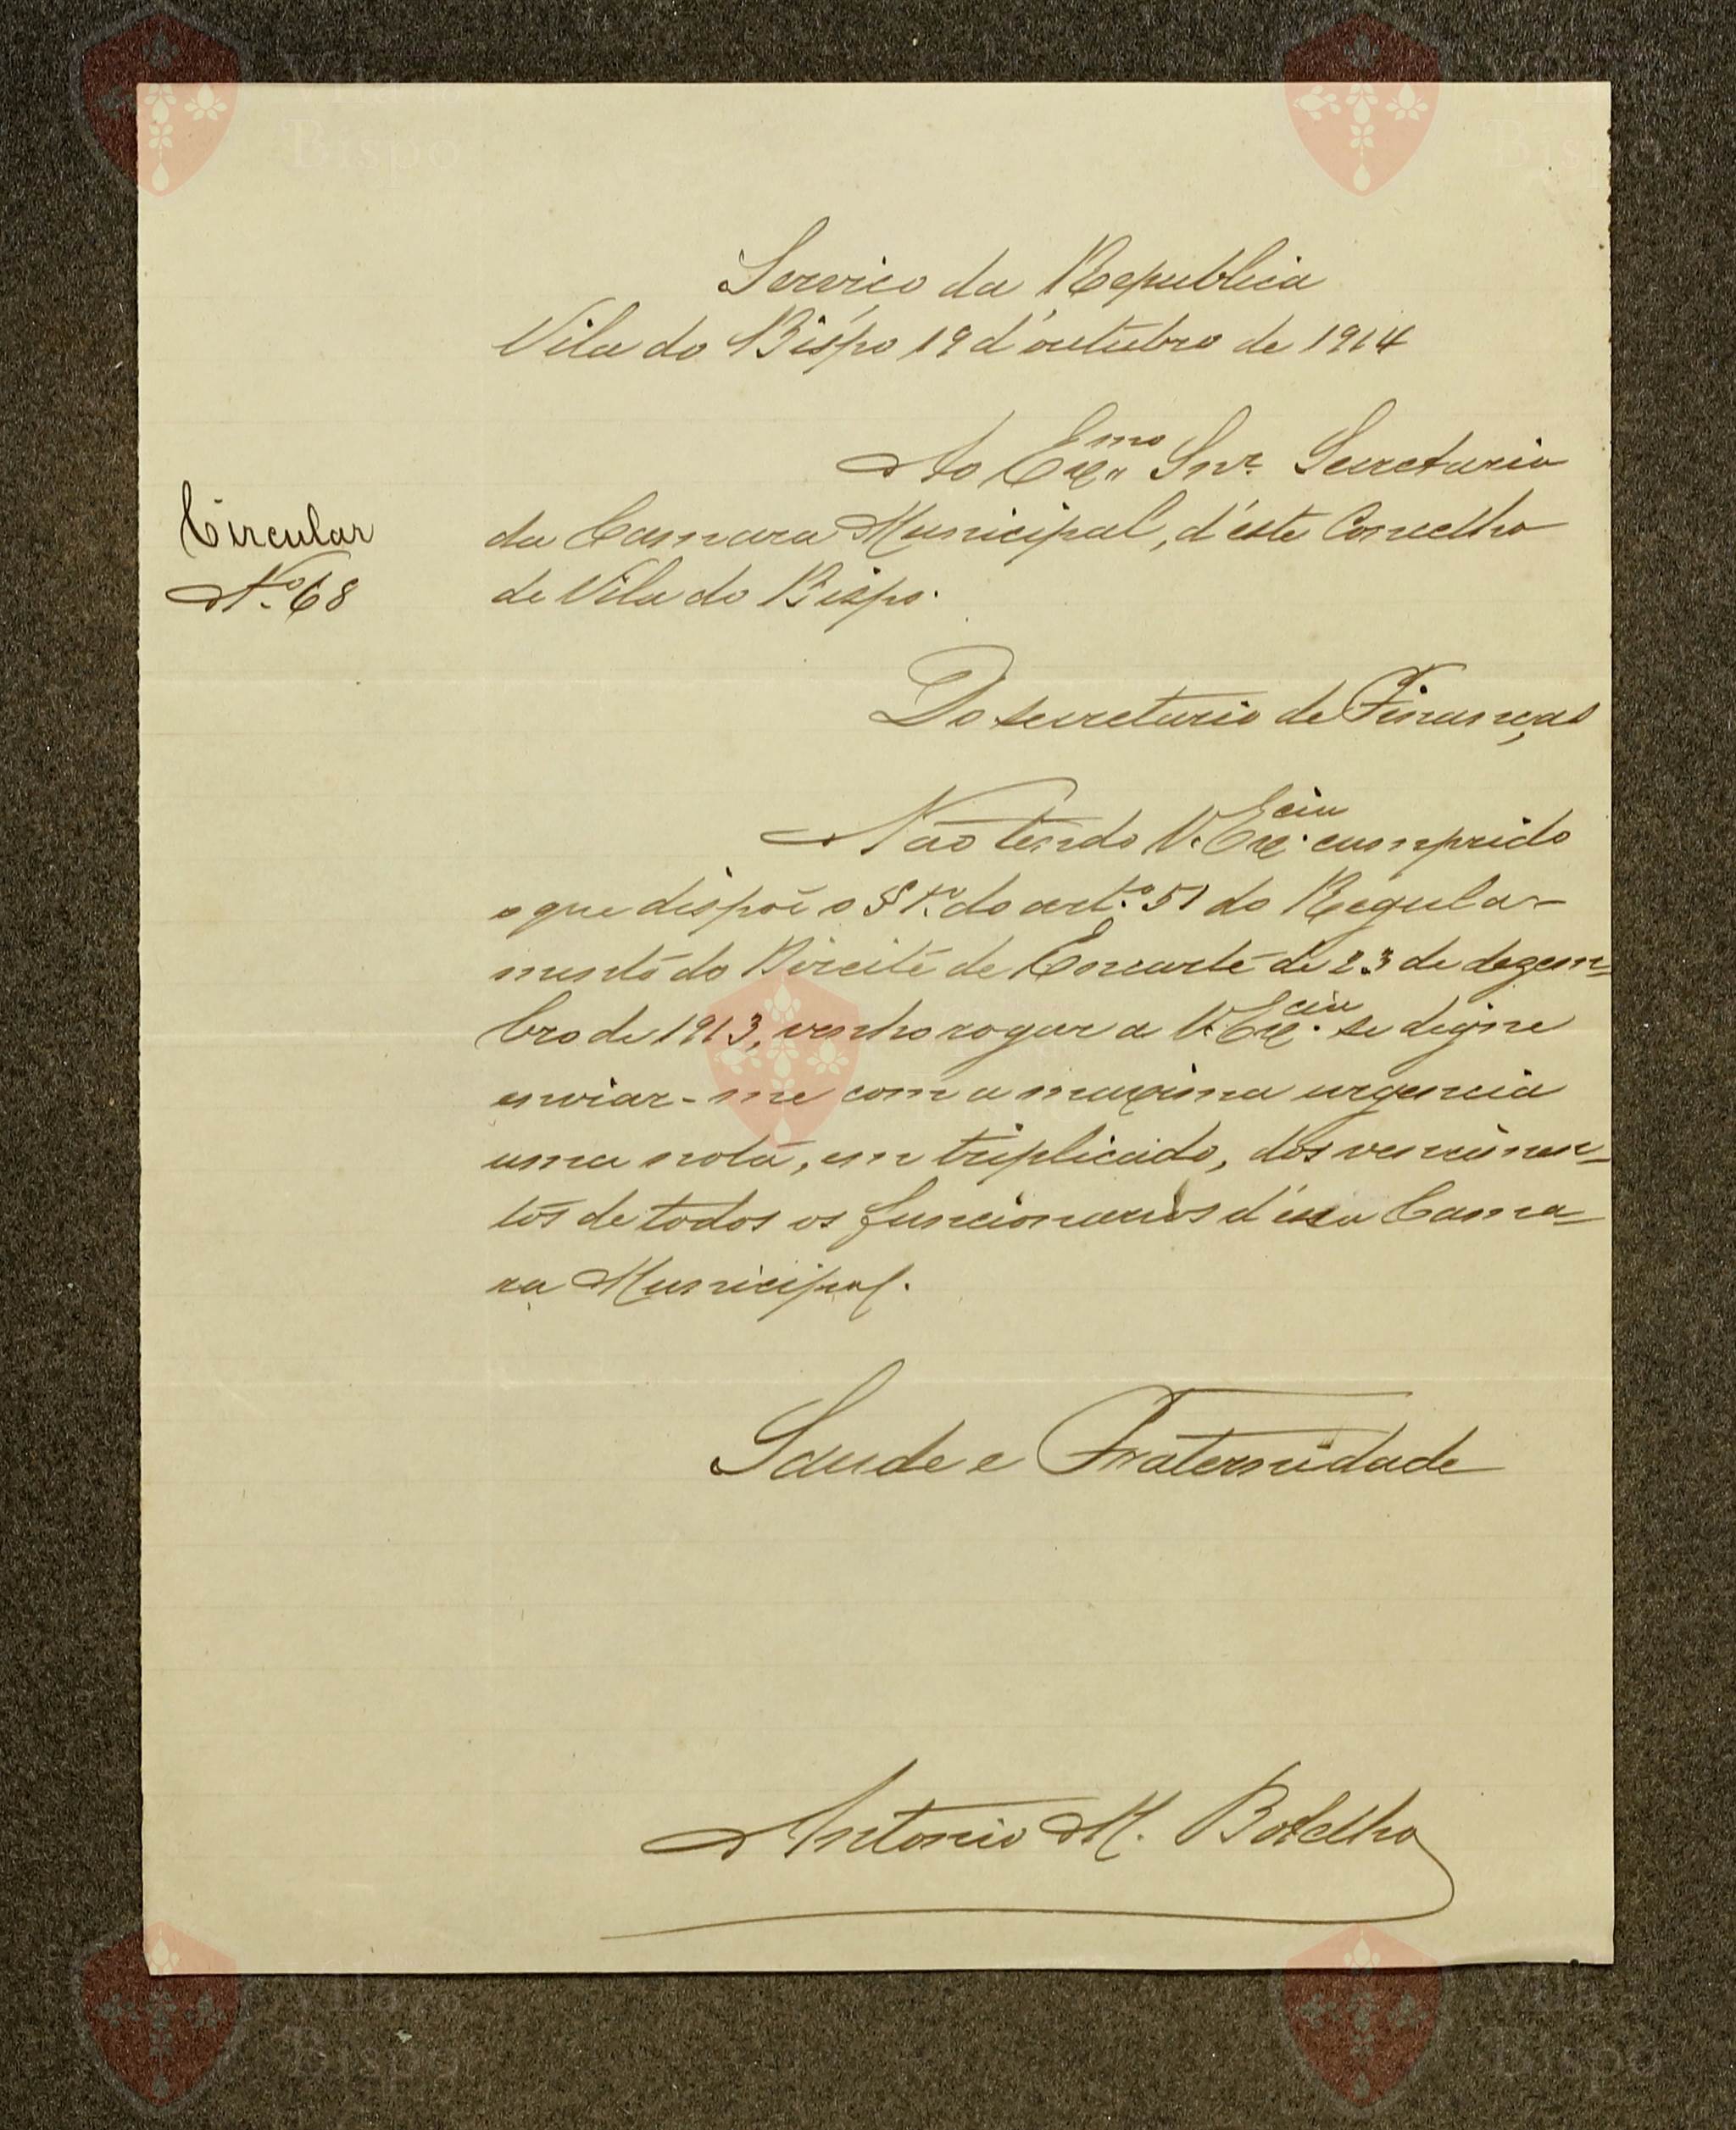 Serviço da Republica
Vila do Bispo 19 d'outubro de 1914
Ao Exmo Snr. Secretario
Circular
da Camara Municipal, d'este Concelho
Nº 68
de Vila do Bispo.
Do secretario de Finanças
Não tendo V. Excia cumprido
o que dispõe o § 1º do artº 51 do Regula-
mento do Direito de Encarte de 23 de dezem-
bro de 1913, venho rogar a V. Excia se digne
enviar-me com a maxima urgencia
uma nota, em triplicado, dos vencimen-
tos de todos os funcionarios d'essa Cama-
ra Municipal.
Saude e Fraternidade
Antonio M. Botelho
Vila do
Bispo